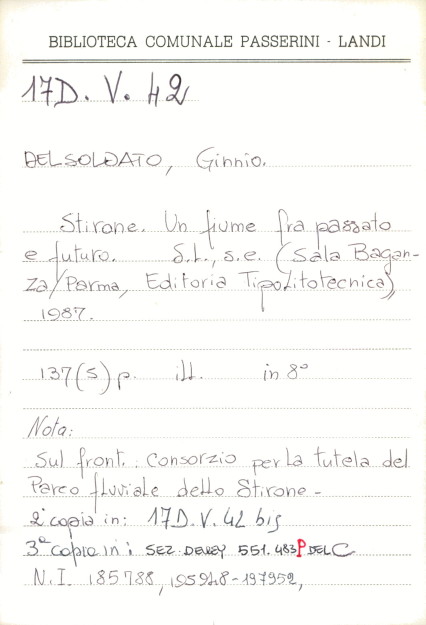 BIBLIOTECA COMUNALE PASSERINI - LANDI
17D. V. 42
DELSOLDATO, Ginnio.
Stirone. Un fiume fra passato
e futuro. S.L., s.e. (Sala Bagan-
za/Parma, Editoria Tipolitotecnica),
1987.
137(5) p. ill. in 8°
Nota:
Sul front. Consorzio per la tutela del
Parco fluviale dello Stirone -
2ª copia in: 17D.V.42 bis
3ª copia in: SEZ. DEWEY 551.483 P DEL C
N.I. 185788, 195948-197952,